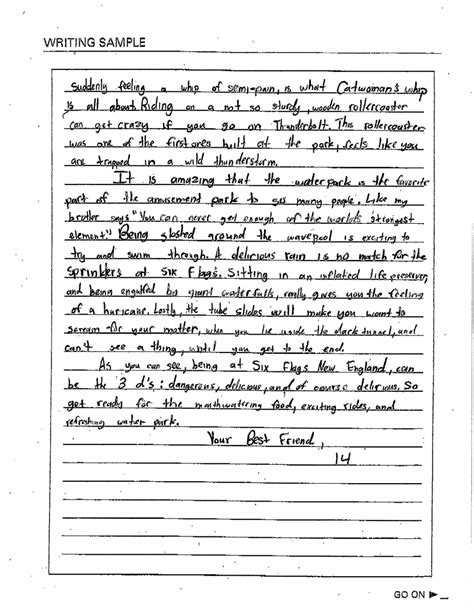 WRITING SAMPLE
suddenly feeling a whip of semi-pain, is what Catwoman's whip
is all about. Riding on a not so sturdy, wooden rollercoaster
can get crazy if you go on Thunderbolt. This rollercoaster
was one of the first ones built at the park, feels like you
are trapped in a wild thunderstorm.
It is amazing that the waterpark is the favorite
part of the amusement park to so many people. Like my
brother says "You can never get enough of the world's strongest
element." Being sloshed around the wavepool is exciting to
try and swim through. A delicious rain is no match for the
sprinklers at Six Flags. Sitting in an inflated life preserver,
and being engulfed by giant waterfalls, really gives you the feeling
of a huricane. Lastly, the tube slides will make you want to
scream for your mother, when you lie inside the dark tunnel, and
can't see a thing, until you get to the end.
As you can see, being at Six Flags New England, can
be the 3 d's: dangerous, delicious, and of course delirious. So
get ready for the mouthwatering food, exciting rides, and
refreshing water park.
Your Best Friend,
14
GO ON